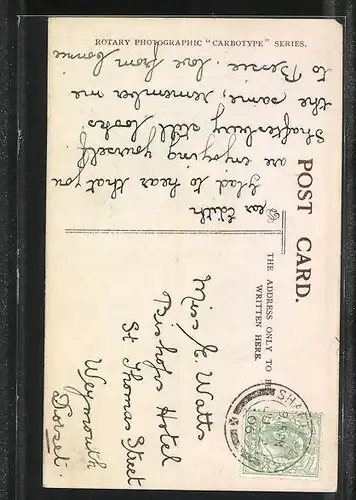 ROTARY PHOTOGRAPHIC "CARBOTYPE" SERIES.
POST CARD.
THE ADDRESS ONLY TO B
WRITTEN HERE.
Dear Edith
Glad to hear that you
are enjoying yourself
Shaftesbury still looks
the same, remember me
to Bessie. love from
Miss E. Watts
Bishops Hotel
St Thomas Street
Weymouth
Dorset.
SHA
06